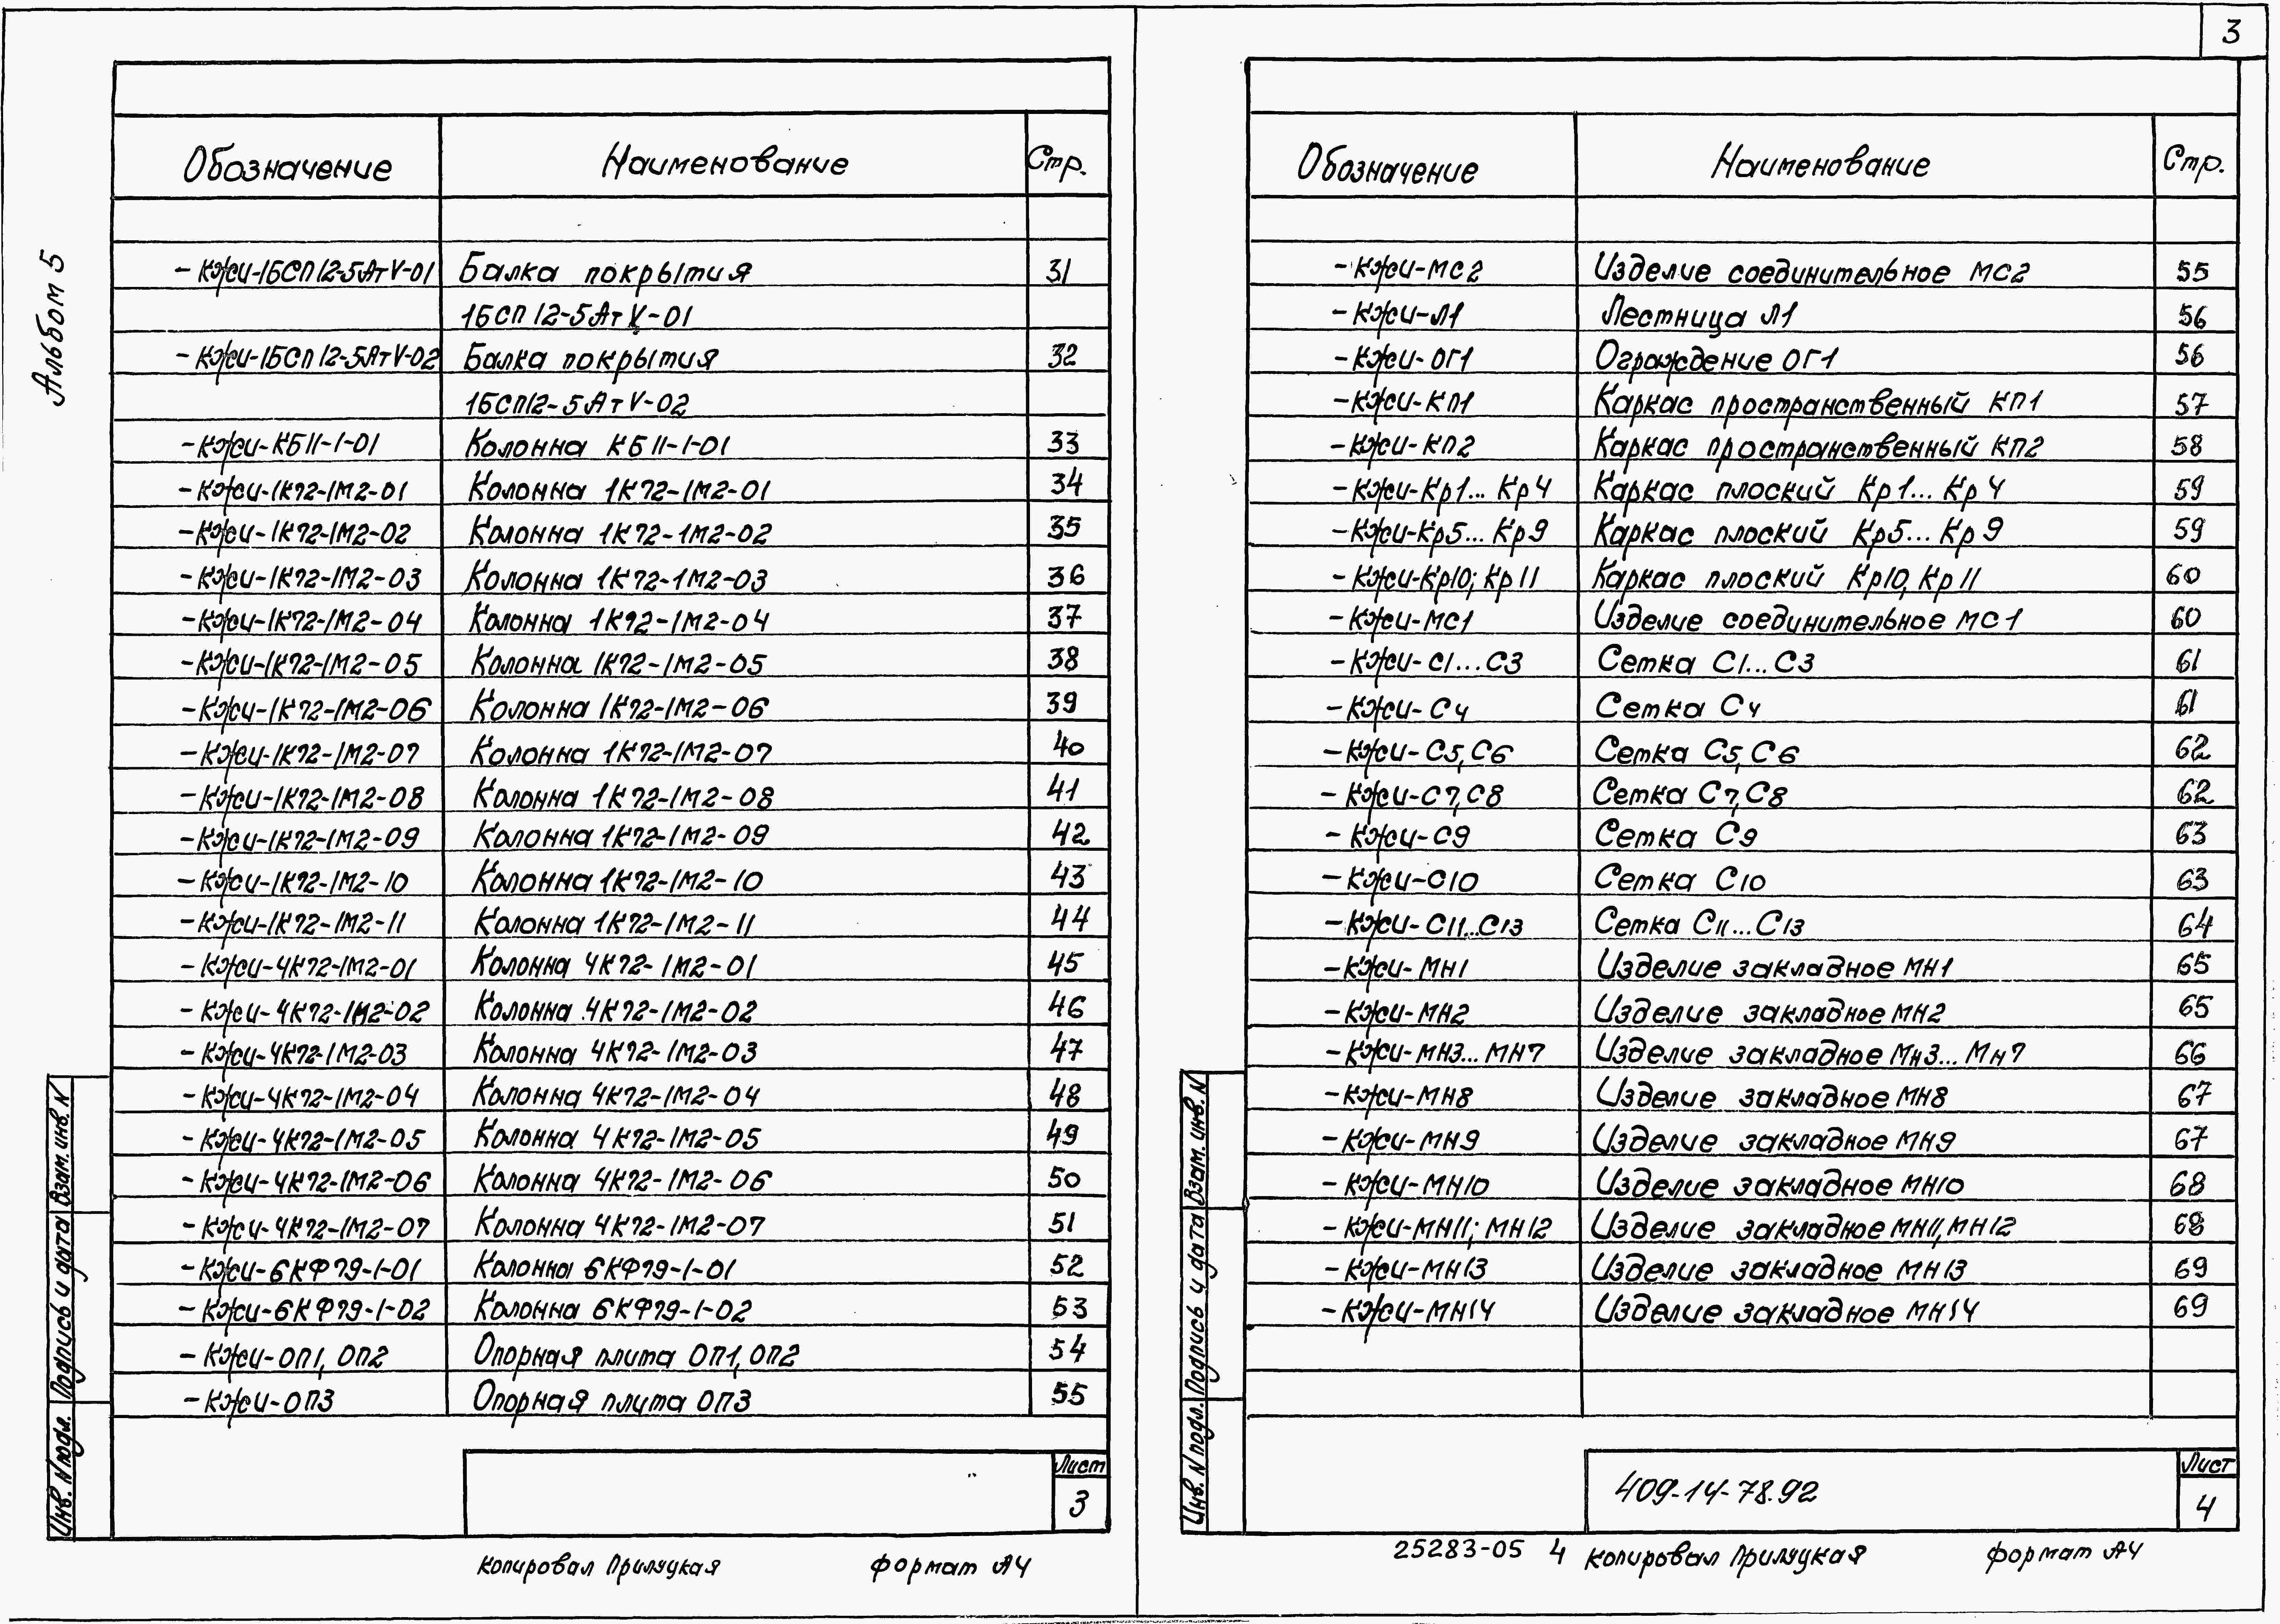 3
Альбом 5
Обозначение Наименование Стр.
-КЖИ-1БСП12-5АтV-01 Балка покрытия 31
1БСП12-5АтV-01
-КЖИ-1БСП12-5АтV-02 Балка покрытия 32
1БСП12-5АтV-02
-КЖИ-КБ11-1-01 Колонна КБ11-1-01 33
-КЖИ-1К72-1М2-01 Колонна 1К72-1М2-01 34
-КЖИ-1К72-1М2-02 Колонна 1К72-1М2-02 35
-КЖИ-1К72-1М2-03 Колонна 1К72-1М2-03 36
-КЖИ-1К72-1М2-04 Колонна 1К72-1М2-04 37
-КЖИ-1К72-1М2-05 Колонна 1К72-1М2-05 38
-КЖИ-1К72-1М2-06 Колонна 1К72-1М2-06 39
-КЖИ-1К72-1М2-07 Колонна 1К72-1М2-07 40
-КЖИ-1К72-1М2-08 Колонна 1К72-1М2-08 41
-КЖИ-1К72-1М2-09 Колонна 1К72-1М2-09 42
-КЖИ-1К72-1М2-10 Колонна 1К72-1М2-10 43
-КЖИ-1К72-1М2-11 Колонна 1К72-1М2-11 44
-КЖИ-4К72-1М2-01 Колонна 4К72-1М2-01 45
-КЖИ-4К72-1М2-02 Колонна 4К72-1М2-02 46
-КЖИ-4К72-1М2-03 Колонна 4К72-1М2-03 47
-КЖИ-4К72-1М2-04 Колонна 4К72-1М2-04 48
-КЖИ-4К72-1М2-05 Колонна 4К72-1М2-05 49
-КЖИ-4К72-1М2-06 Колонна 4К72-1М2-06 50
-КЖИ-4К72-1М2-07 Колонна 4К72-1М2-07 51
-КЖИ-6КФ79-1-01 Колонна 6КФ79-1-01 52
-КЖИ-6КФ79-1-02 Колонна 6КФ79-1-02 53
-КЖИ-ОП1, ОП2 Опорная плита ОП1, ОП2 54
-КЖИ-ОП3 Опорная плита ОП3 55
Взам. инв. N
Подпись и дата
Инв. N подл.
Лист
3
Копировал Прилуцкая формат А4
Обозначение Наименование Стр.
-КЖИ-МС2 Изделие соединительное МС2 55
-КЖИ-Л1 Лестница Л1 56
-КЖИ-ОГ1 Ограждение ОГ1 56
-КЖИ-КП1 Каркас пространственный КП1 57
-КЖИ-КП2 Каркас пространственный КП2 58
-КЖИ-Кр1...Кр4 Каркас плоский Кр1...Кр4 59
-КЖИ-Кр5...Кр9 Каркас плоский Кр5...Кр9 59
-КЖИ-Кр10; Кр11 Каркас плоский Кр10, Кр11 60
-КЖИ-МС1 Изделие соединительное МС1 60
-КЖИ-С1...С3 Сетка С1...С3 61
-КЖИ-С4 Сетка С4 61
-КЖИ-С5, С6 Сетка С5, С6 62
-КЖИ-С7, С8 Сетка С7, С8 62
-КЖИ-С9 Сетка С9 63
-КЖИ-С10 Сетка С10 63
-КЖИ-С11...С13 Сетка С11...С13 64
-КЖИ-МН1 Изделие закладное МН1 65
-КЖИ-МН2 Изделие закладное МН2 65
-КЖИ-МН3...МН7 Изделие закладное Мн3...Мн7 66
-КЖИ-МН8 Изделие закладное МН8 67
-КЖИ-МН9 Изделие закладное МН9 67
-КЖИ-МН10 Изделие закладное МН10 68
-КЖИ-МН11; МН12 Изделие закладное МН11, МН12 68
-КЖИ-МН13 Изделие закладное МН13 69
-КЖИ-МН14 Изделие закладное МН14 69
Взам. инв. N
Подпись и дата
Инв. N подл.
409-14-78.92
Лист
4
25283-05 4 Копировал Прилуцкая формат А4